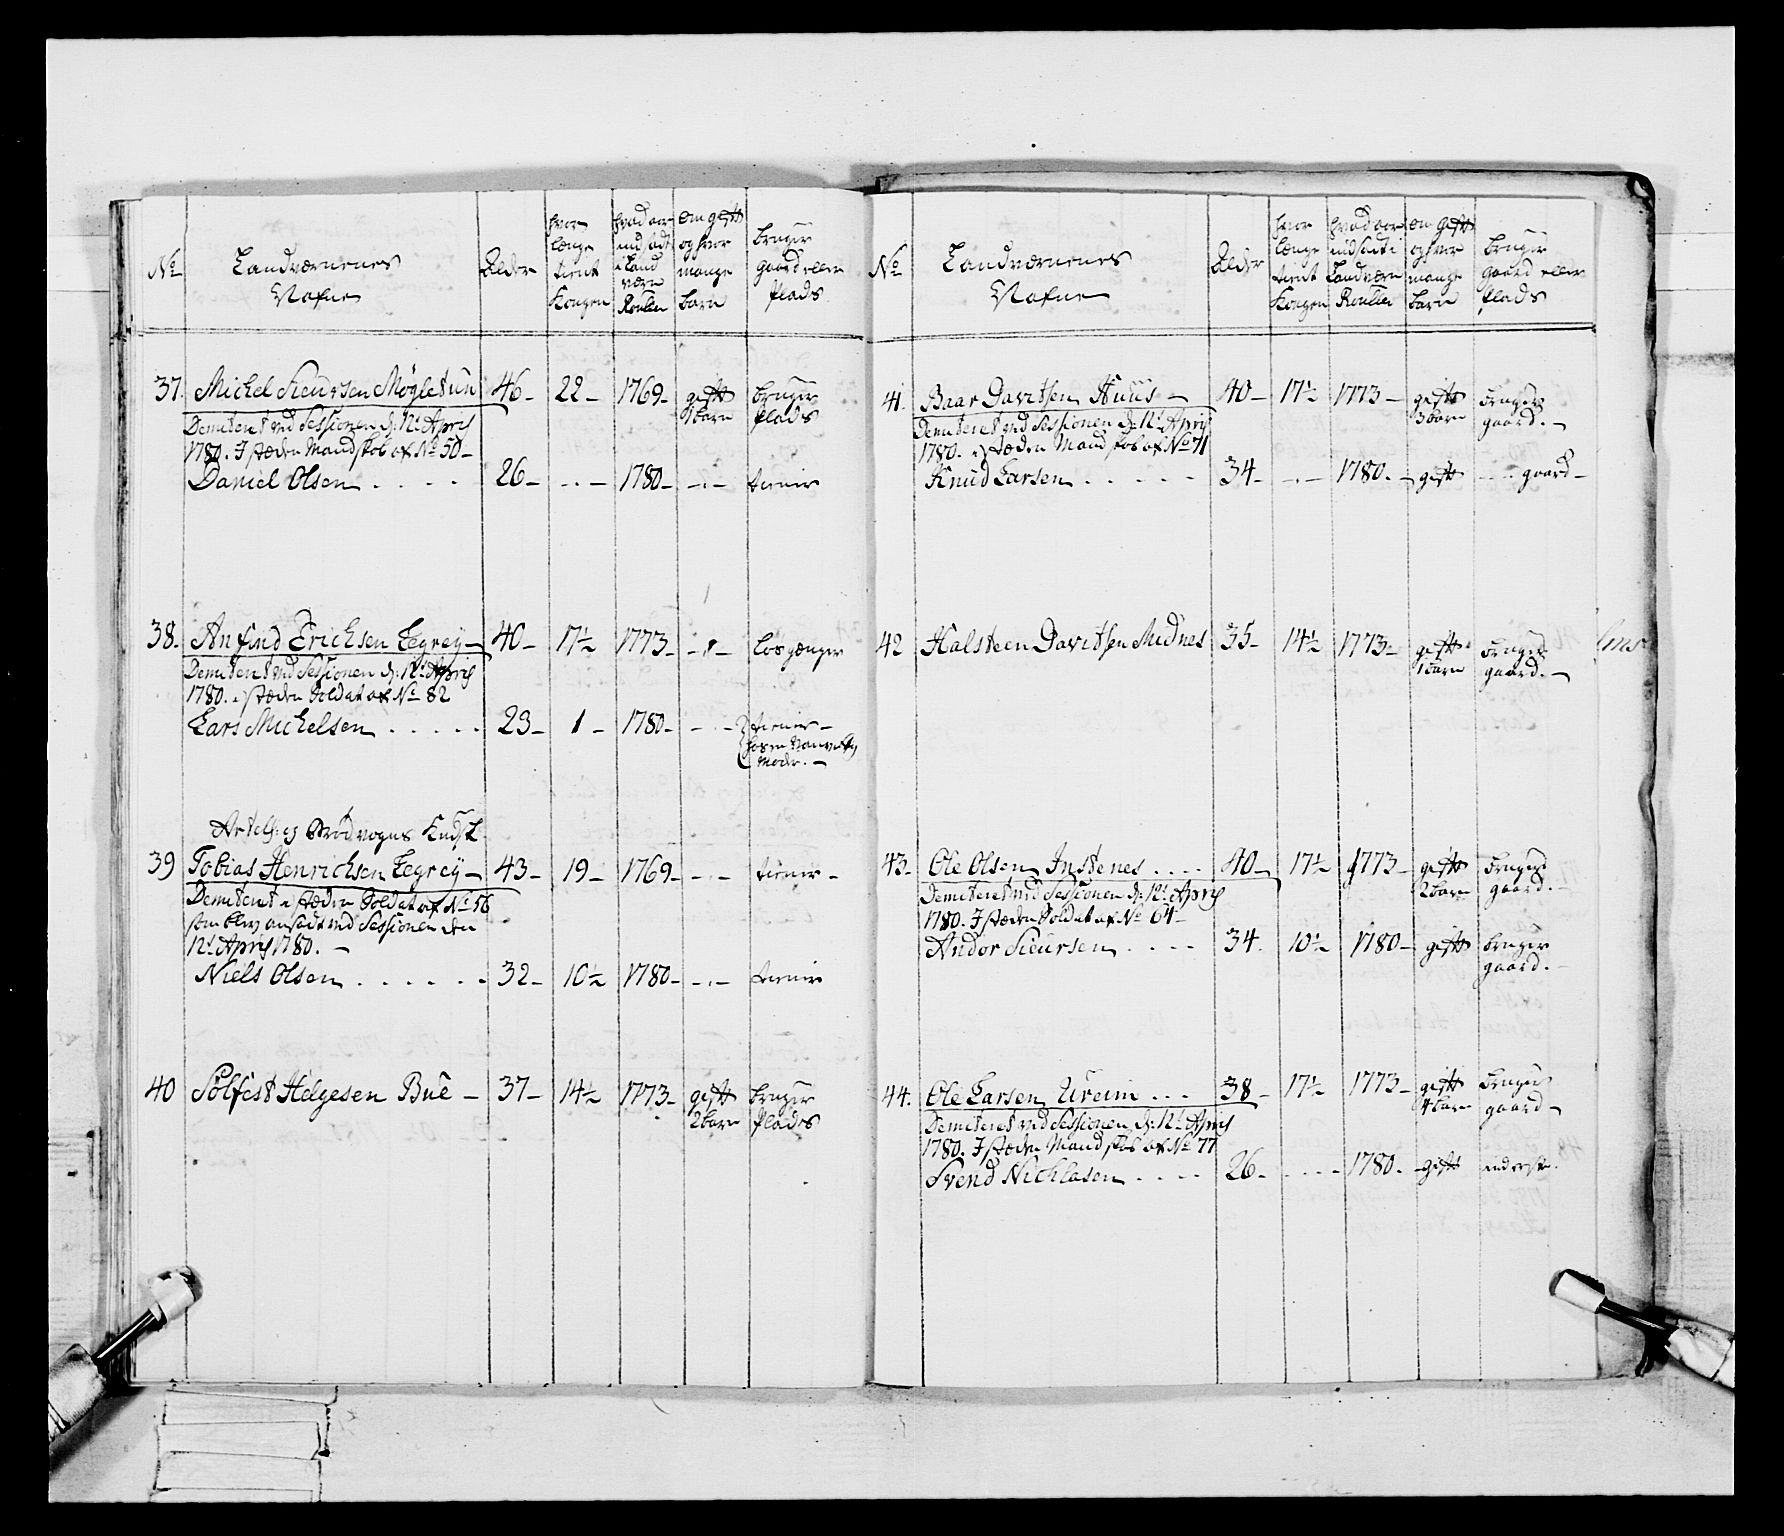 No
Landværnenes
Nafne
Alder
hvor
længe
tient
Kongen
hvad aar
indsadt
i Land
værn
Roullen
om gift
og hvor
mange
barn
bruger
gaard eller
Plads
37. Michel Sieursen Møgletun 46- 22- 1769- gift bruger
1 barn Plads
Demiteret ved Sessionen d: 12t April
1780. I stæden Mandskob af No 50-
Daniel Olsen . . . . 26- - . - 1780- - . - tienir
38. Anfind Erichsen Tegrey- 40- 17½ 1773- - . - løsgænger
Demiteret ved Sessionen d: 12t April
1780. i stæden Soldat af No 82
Lars Michelsen . . . . . 23- 1- 1780- - . - tienir-
hos en
Mode. -
Artel: og Brødvogns Kudsk
39 Tobias Henrichsen Tegrey- 43- 19- 1769- - . - tienir-
Demiteret i stæden Soldat af No 56
som blev ansadt ved Sessionen den
12t April 1780. -
Niels Olsen . . . . . . 32- 10½ 1780- - . - tienir
40 Sølfest Helgesen Bue - 37- 14½ 1773- gift bruger
2 barn Plads
No
Landværnenes
Nafne
Alder
hvor
længe
tient
Kongen
hvad aar
indsadt i
Landværn
Roullen
om gift
og hvor
mange
barn
bruger
gaard eller
Plads
41. Baar Davitsen Huus - 40- 17½ 1773- gift bruger
3 barn gaard. -
Demiteret ved Sessionen d: 12t April
1780. i stæden Mandskob af No 71
Knud Larsen . . . . . 34- - . - 1780. - gift - . . gaard-
42 Halsteen Davitsen Midnes 35- 14½ 1773- gift bruger
1 barn gaard. -
43. Ole Olsen Instenes . . . . 40- 17½ 1773- gift bruger
2 barn gaard. -
Demiteret ved Sessionen d: 12t April
1780. I stæden Soldat af No 64-
Andor Sieursen . . . . 34. 10½ 1780- gift bruger
gaard. -
44. Ole Larsen Ureim . . . 38- 17½ 1773- gift bruger
4 barn gaard-
Demiteret ved Sessionen d: 12t April
1780. I stæden Mandskob af No 77
Svend Nichlasen . . . . 26- . . . - 1780. - gift inderste.